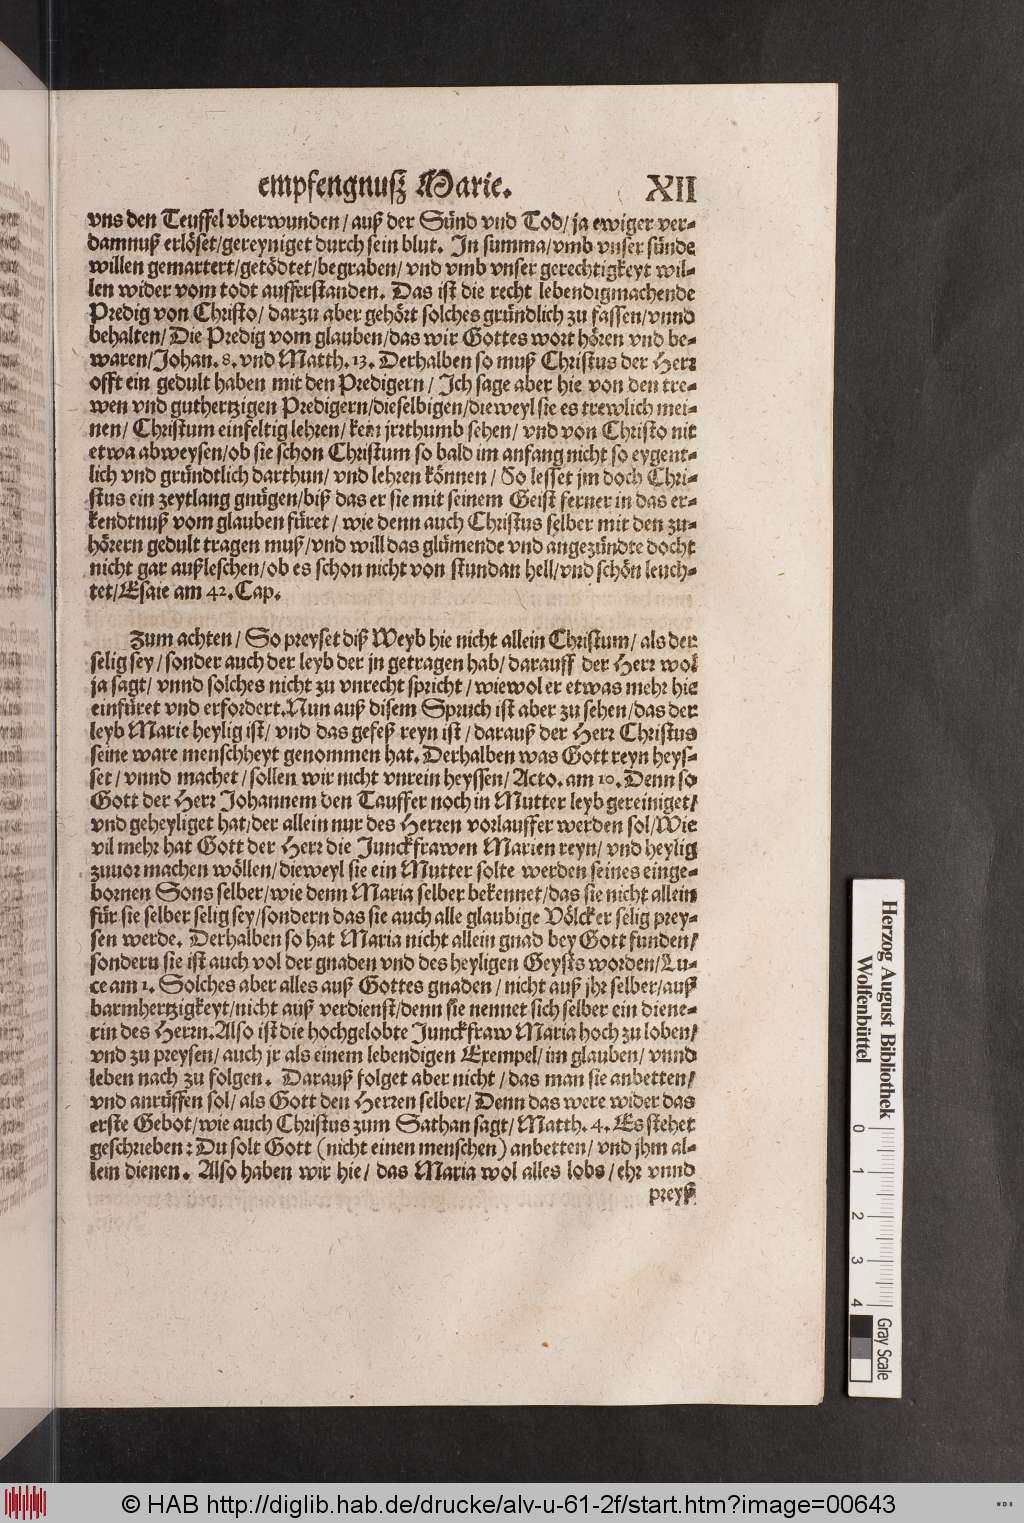 empfengnusz Marie. XII
vns den Teuffel vberwunden / auß der Sünd vnd Tod / ja ewiger ver-
damnuß erlöset / gereyniget durch sein blut. In summa / vmb vnser sünde
willen gemartert / getödtet / begraben / vnd vmb vnser gerechtigkeyt wil-
len wider vom todt aufferstanden. Das ist die recht lebendigmachende
Predig von Christo / darzu aber gehört solches gründlich zu fassen / vnnd
behalten / Die Predig vom glauben / das wir Gottes wort hören vnd be-
waren / Johan. 8. vnd Matth. 13. Derhalben so muß Christus der Herr
offt ein gedult haben mit den Predigern / Ich sage aber hie von den tre-
wen vnd guthertzigen Predigern / dieselbigen / dieweyl sie es trewlich mei-
nen / Christum einfeltig lehren / kein jrrthumb sehen / vnd von Christo nit
etwa abweysen / ob sie schon Christum so bald im anfang nicht so eygent-
lich vnd gründtlich darthun / vnd lehren können / So lesset jm doch Chri-
stus ein zeytlang gnügen / biß das er sie mit seinem Geist ferner in das er-
kendtnuß vom glauben füret / wie denn auch Christus selber mit den zu-
hörern gedult tragen muß / vnd will das glümende vnd angezündte docht
nicht gar außleschen / ob es schon nicht von stundan hell / vnd schön leuch-
tet / Esaie am 42. Cap.
Zum achten / So preyset diß Weyb hie nicht allein Christum / als der
selig sey / sonder auch der leyb der jn getragen hab / darauff der Herr wol
ja sagt / vnnd solches nicht zu vnrecht spricht / wiewol er etwas mehr hie
einfüret vnd erfordert. Nun auß disem Spruch ist aber zu sehen / das der
leyb Marie heylig ist / vnd das gefeß reyn ist / darauß der Herr Christus
seine ware menschheyt genommen hat. Derhalben was Gott reyn heys-
set / vnnd machet / sollen wir nicht vnrein heyssen / Acto. am 10. Denn so
Gott der Herr Johannem den Tauffer noch in Mutter leyb gereiniget /
vnd geheyliget hat / der allein nur des Herren vorlauffer werden sol / Wie
vil mehr hat Gott der Herr die Junckfrawen Marien reyn / vnd heylig
zuuor machen wöllen / dieweyl sie ein Mutter solte werden seines einge-
bornen Sons selber / wie denn Maria selber bekennet / das sie nicht allein
für sie selber selig sey / sondern das sie auch alle glaubige Völcker selig prey-
sen werde. Derhalben so hat Maria nicht allein gnad bey Gott funden /
sondern sie ist auch vol der gnaden vnd des heyligen Geysts worden / Lu-
ce am 1. Solches aber alles auß Gottes gnaden / nicht auß jhr selber / auß
barmhertzigkeyt / nicht auß verdienst / denn sie nennet sich selber ein diene-
rin des Herrn. Also ist die hochgelobte Junckfraw Maria hoch zu loben /
vnd zu preysen / auch jr als einem lebendigen Exempel / im glauben / vnnd
leben nach zu folgen. Darauß folget aber nicht / das man sie anbetten /
vnd anrüffen sol / als Gott den Herren selber / Denn das were wider das
erste Gebot / wie auch Christus zum Sathan sagt / Matth. 4. Es stehet
geschrieben : Du solt Gott (nicht einen menschen) anbetten / vnd jhm al-
lein dienen. Also haben wir hie / das Maria wol alles lobs / ehr vnnd
preyß
Herzog August Bibliothek
Wolfenbüttel
0 1 2 3 4
Gray Scale
© HAB http://diglib.hab.de/drucke/alv-u-61-2f/start.htm?image=00643